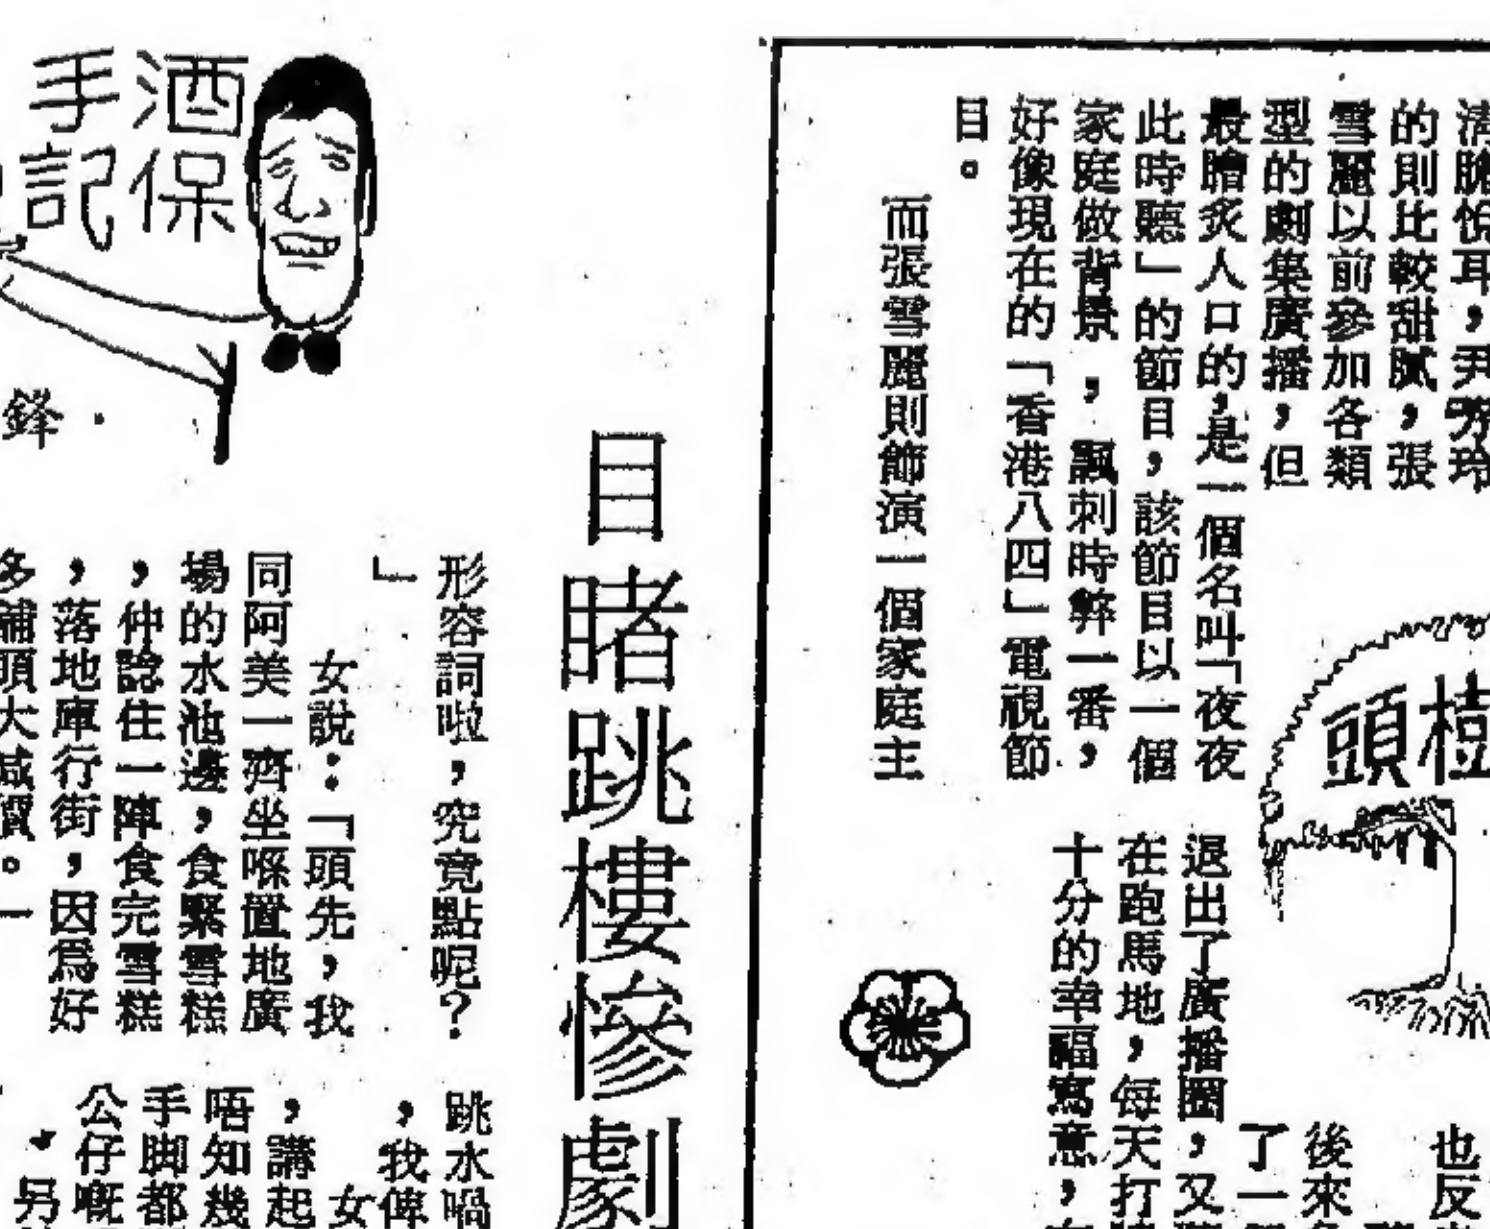 清脆悅耳，尹芳玲
的則比較甜膩，張
雪麗以前參加各類
型的劇集廣播，但
最膾炙人口的，是一個名叫「夜夜
此時聽」的節目，該節目以一個
家庭做背景，諷刺時弊一番，
好像現在的「香港八四」電視節
目。
而張雪麗則飾演一個家庭主
頭
也反
後來
了一
退出了廣播圈，又
在跑馬地，每天打
十分的幸福寫意，
目睹跳樓慘劇
酒保
手記
鋒
形容詞啦，究竟點呢？
」
女說：「頭先，我
同阿美一齊坐喺置地廣
場的水池邊，食緊雪糕
，仲諗住一陣食完雪糕
，落地庫行街，因爲好
多舖頭大減價。一
跳水喎
，我俾
女
，講起
唔知幾
手脚都
公仔嘅
，另